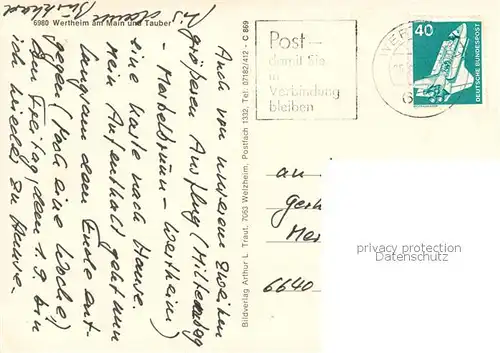 6980 Wertheim am Main und Tauber
Auch von unserem zweiten
größeren Ausflug (Miltenberg
- Mespelbrunn - Wertheim)
eine Karte nach Hause.
Mein Aufenthalt geht nun
langsam dem Ende ent-
gegen (Noch eine Woche)
Am Freitag, dem 1.9. bin
ich wieder zu Hause.
Bis
Bildverlag Arthur L. Traut, 7063 Welzheim, Postfach 1332, Tel. 07182/412 - C 869
Post –
damit Sie
in
Verbindung
bleiben
WER
6
40
DEUTSCHE BUNDESPOST
an
gerh
Mer
6640
privatsammler
Datenschutz